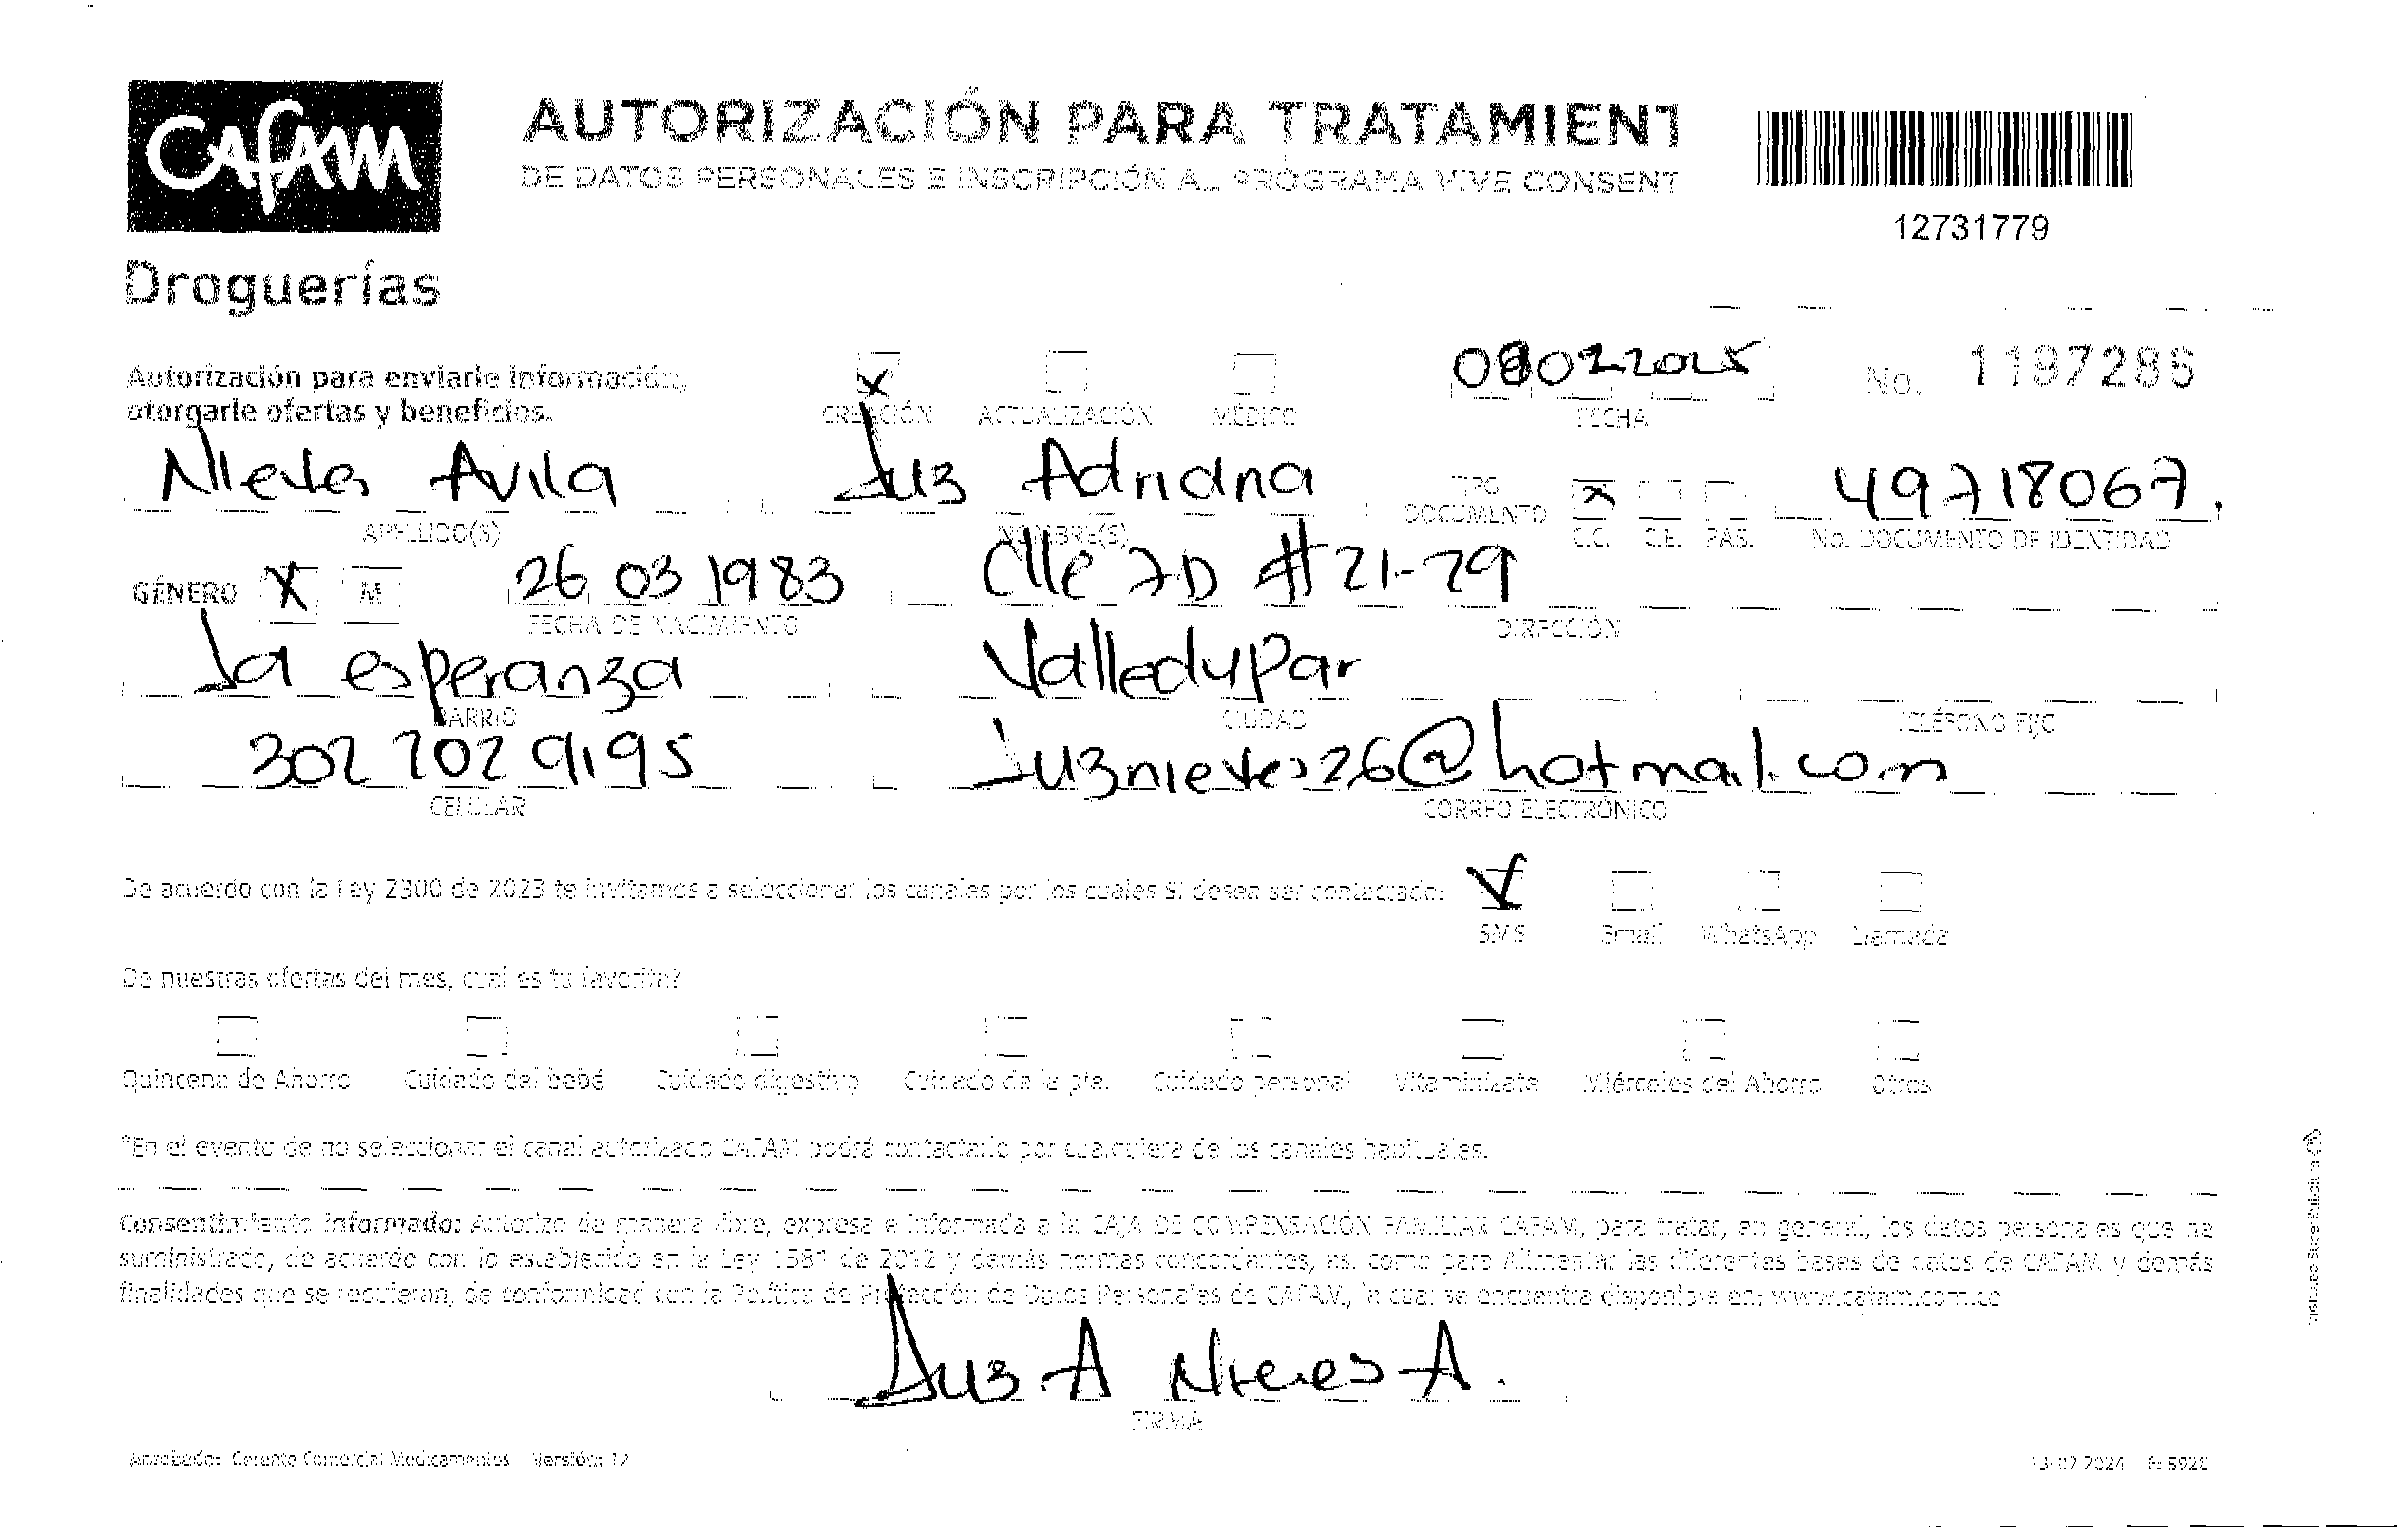 CAFAM
Droguerías
AUTORIZACIÓN PARA TRATAMIENT
DE DATOS PERSONALES E INSCRIPCIÓN AL PROGRAMA VIVE CONSENT
12731779
Autorización para enviarle información,
otorgarle ofertas y beneficios.
X CREACIÓN ACTUALIZACIÓN MÉDICO
08022025
FECHA
No. 1197286
Nieves Avila Luz Adriana
APELLIDO(S) NOMBRE(S)
TIPO DOCUMENTO X C.C. C.E. PAS. 49718067.
No. DOCUMENTO DE IDENTIDAD
GÉNERO X M 26 03 1983 Clle 7D #21-29
FECHA DE NACIMIENTO DIRECCIÓN
La esperanza Valledupar
BARRIO CIUDAD TELÉFONO FIJO
302 702 9195 Luznieves26@hotmail.com
CELULAR CORREO ELECTRÓNICO
De acuerdo con la Ley 2300 de 2023 te invitamos a seleccionar los canales por los cuales SI desea ser contactado:
SMS Email WhatsApp Llamada
De nuestras ofertas del mes, cuál es tu favorita?
Quincena de Ahorro Cuidado del bebé Cuidado digestivo Cuidado de la piel Cuidado personal Vitaminízate Miércoles del Ahorro Otros
*En el evento de no seleccionar el canal autorizado CAFAM podrá contactarlo por cualquiera de los canales habituales.
Consentimiento informado: Autorizo de manera libre, expresa e informada a la CAJA DE COMPENSACIÓN FAMILIAR CAFAM, para tratar, en general, los datos personales que he
suministrado, de acuerdo con lo establecido en la Ley 1581 de 2012 y demás normas concordantes, así como para Alimentar las diferentes bases de datos de CAFAM y demás
finalidades que se requieran, de conformidad con la Política de Protección de Datos Personales de CAFAM, la cual se encuentra disponible en: www.cafam.com.co
Luz A Nieves A.
FIRMA
Aprobado: Gerente Comercial Medicamentos Versión: 12
13-02-2024 F-5928